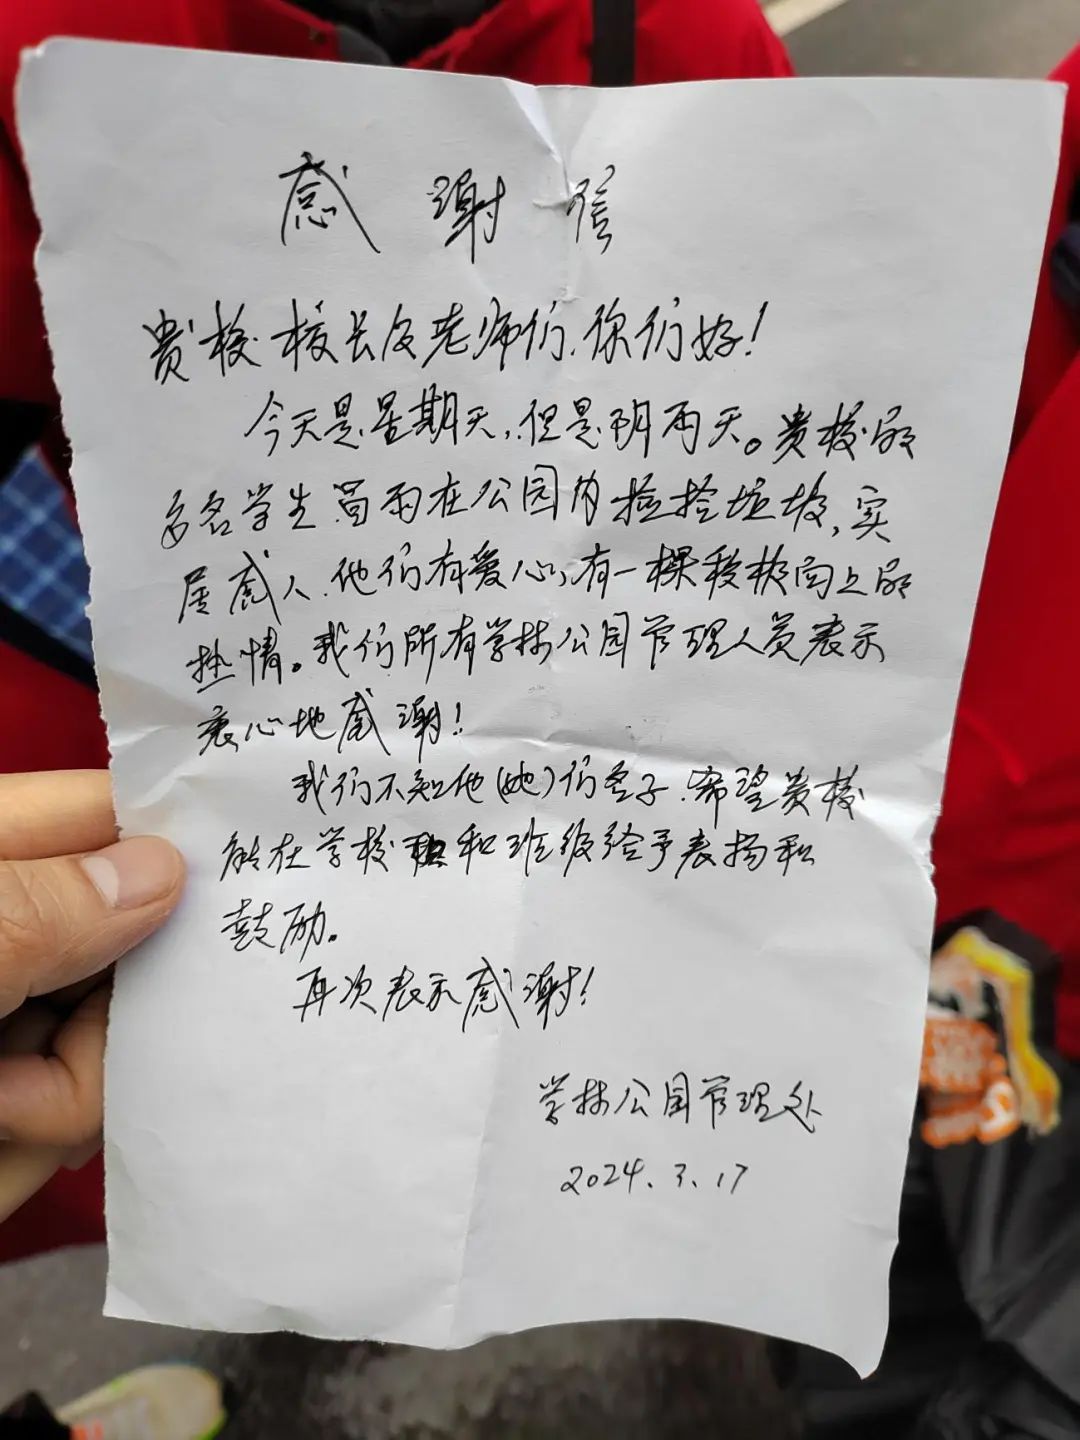 感谢信
贵校校长及老师们,你们好!
今天是星期天,但是阴雨天。贵校的
多名学生冒雨在公园内捡拾垃圾,实
属感人.他们有爱心,有一棵积极向上的
热情。我们所有学林公园管理人员表示
衷心地感谢!
我们不知他(她)们名子.希望贵校
能在学校和班级给予表扬和
鼓励。
再次表示感谢!
学林公园管理处
2024.3.17